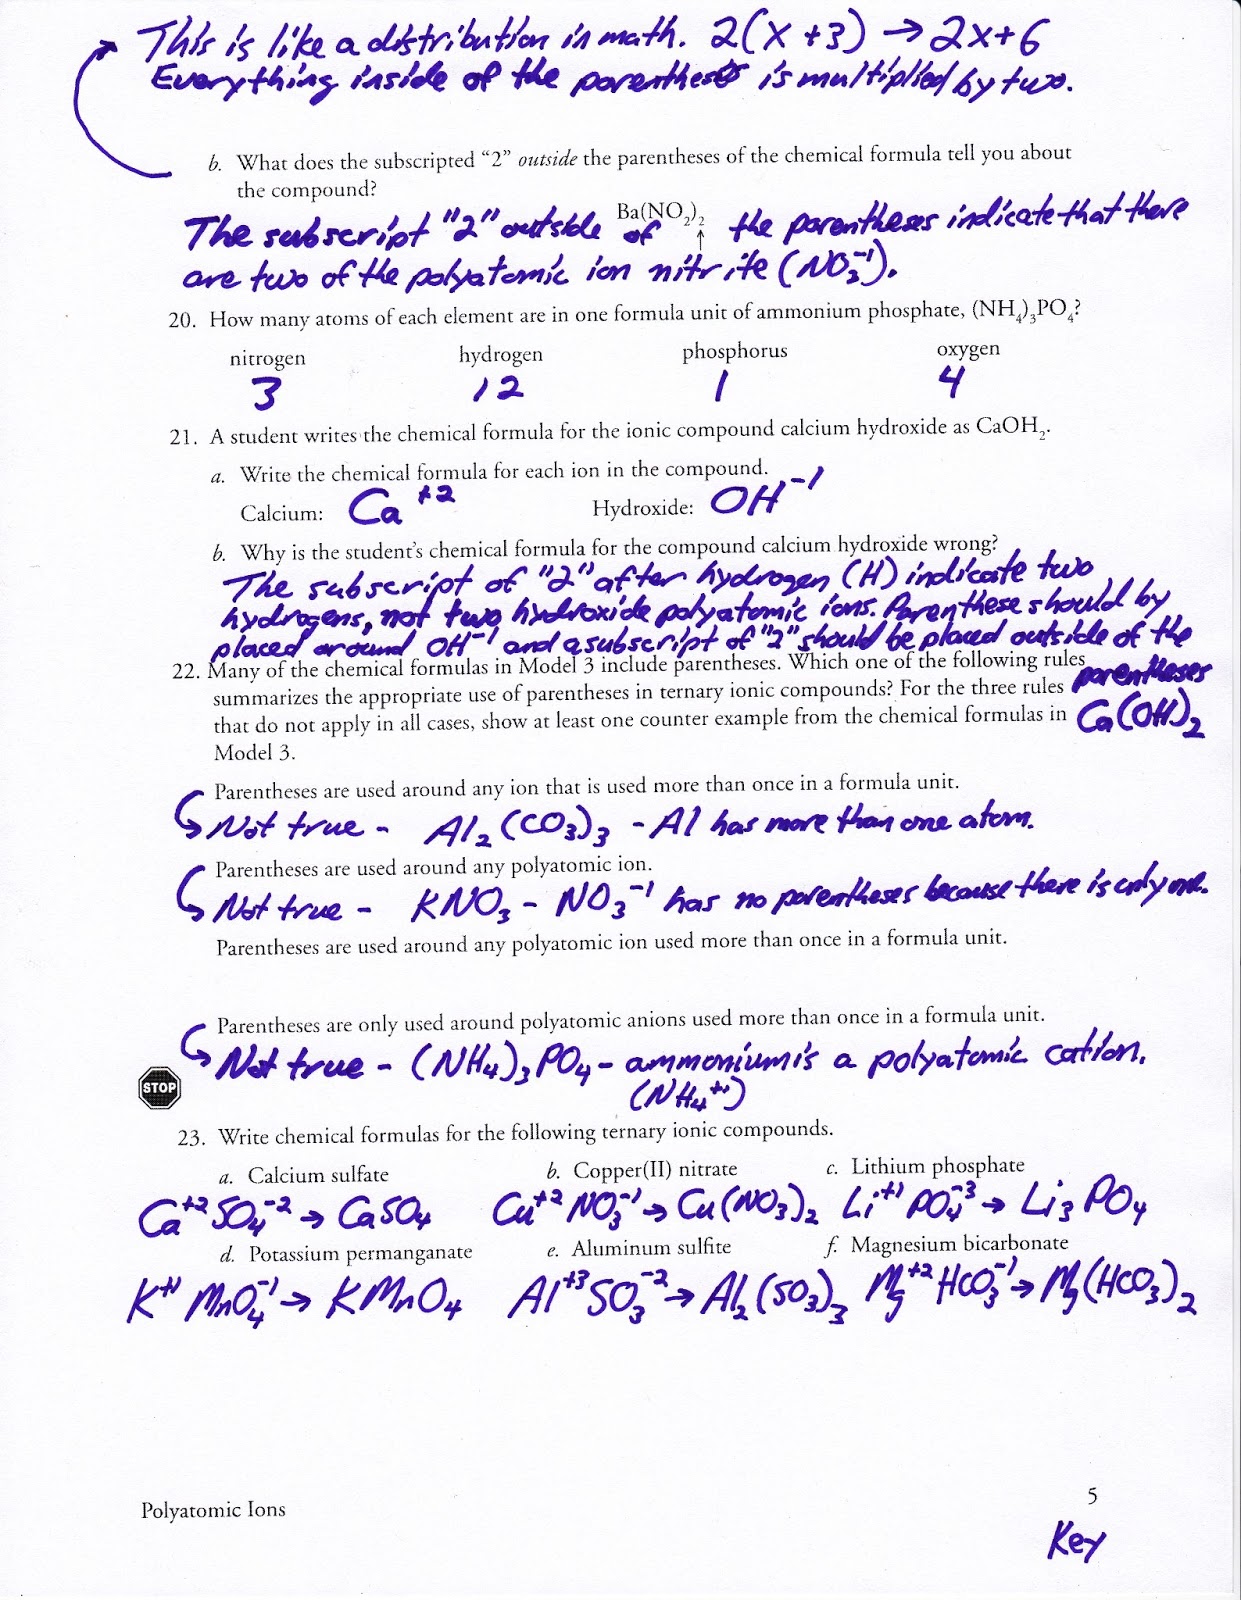 This is like a distribution in math. 2(x+3) → 2x+6
Everything inside of the parentheses is multiplied by two.
b. What does the subscripted “2” outside the parentheses of the chemical formula tell you about
the compound?
Ba(NO₂)₂
↑
The subscript "2" outside of the parentheses indicate that there
are two of the polyatomic ion nitrite (NO₃⁻¹).
20. How many atoms of each element are in one formula unit of ammonium phosphate, (NH₄)₃PO₄?
nitrogen hydrogen phosphorus oxygen
3 12 1 4
21. A student writes the chemical formula for the ionic compound calcium hydroxide as CaOH₂.
a. Write the chemical formula for each ion in the compound.
Calcium: Ca⁺² Hydroxide: OH⁻¹
b. Why is the student’s chemical formula for the compound calcium hydroxide wrong?
The subscript of "2" after hydrogen (H) indicate two
hydrogens, not two hydroxide polyatomic ions. Parenthese should by
placed around OH⁻¹ and a subscript of "2" should be placed outside of the
parentheses
Ca(OH)₂
22. Many of the chemical formulas in Model 3 include parentheses. Which one of the following rules
summarizes the appropriate use of parentheses in ternary ionic compounds? For the three rules
that do not apply in all cases, show at least one counter example from the chemical formulas in
Model 3.
Parentheses are used around any ion that is used more than once in a formula unit.
Not true - Al₂(CO₃)₃ - Al has more than one atom.
Parentheses are used around any polyatomic ion.
Not true - KNO₃ - NO₃⁻¹ has no parentheses because there is only one.
Parentheses are used around any polyatomic ion used more than once in a formula unit.
Parentheses are only used around polyatomic anions used more than once in a formula unit.
Not true - (NH₄)₃PO₄ - ammonium is a polyatomic cation.
(NH₄⁺¹)
STOP
23. Write chemical formulas for the following ternary ionic compounds.
a. Calcium sulfate b. Copper(II) nitrate c. Lithium phosphate
Ca⁺² SO₄⁻² → CaSO₄ Cu⁺² NO₃⁻¹ → Cu(NO₃)₂ Li⁺¹ PO₄⁻³ → Li₃PO₄
d. Potassium permanganate e. Aluminum sulfite f. Magnesium bicarbonate
K⁺¹ MnO₄⁻¹ → KMnO₄ Al⁺³ SO₃⁻² → Al₂(SO₃)₃ Mg⁺² HCO₃⁻¹ → Mg(HCO₃)₂
Polyatomic Ions 5
Key